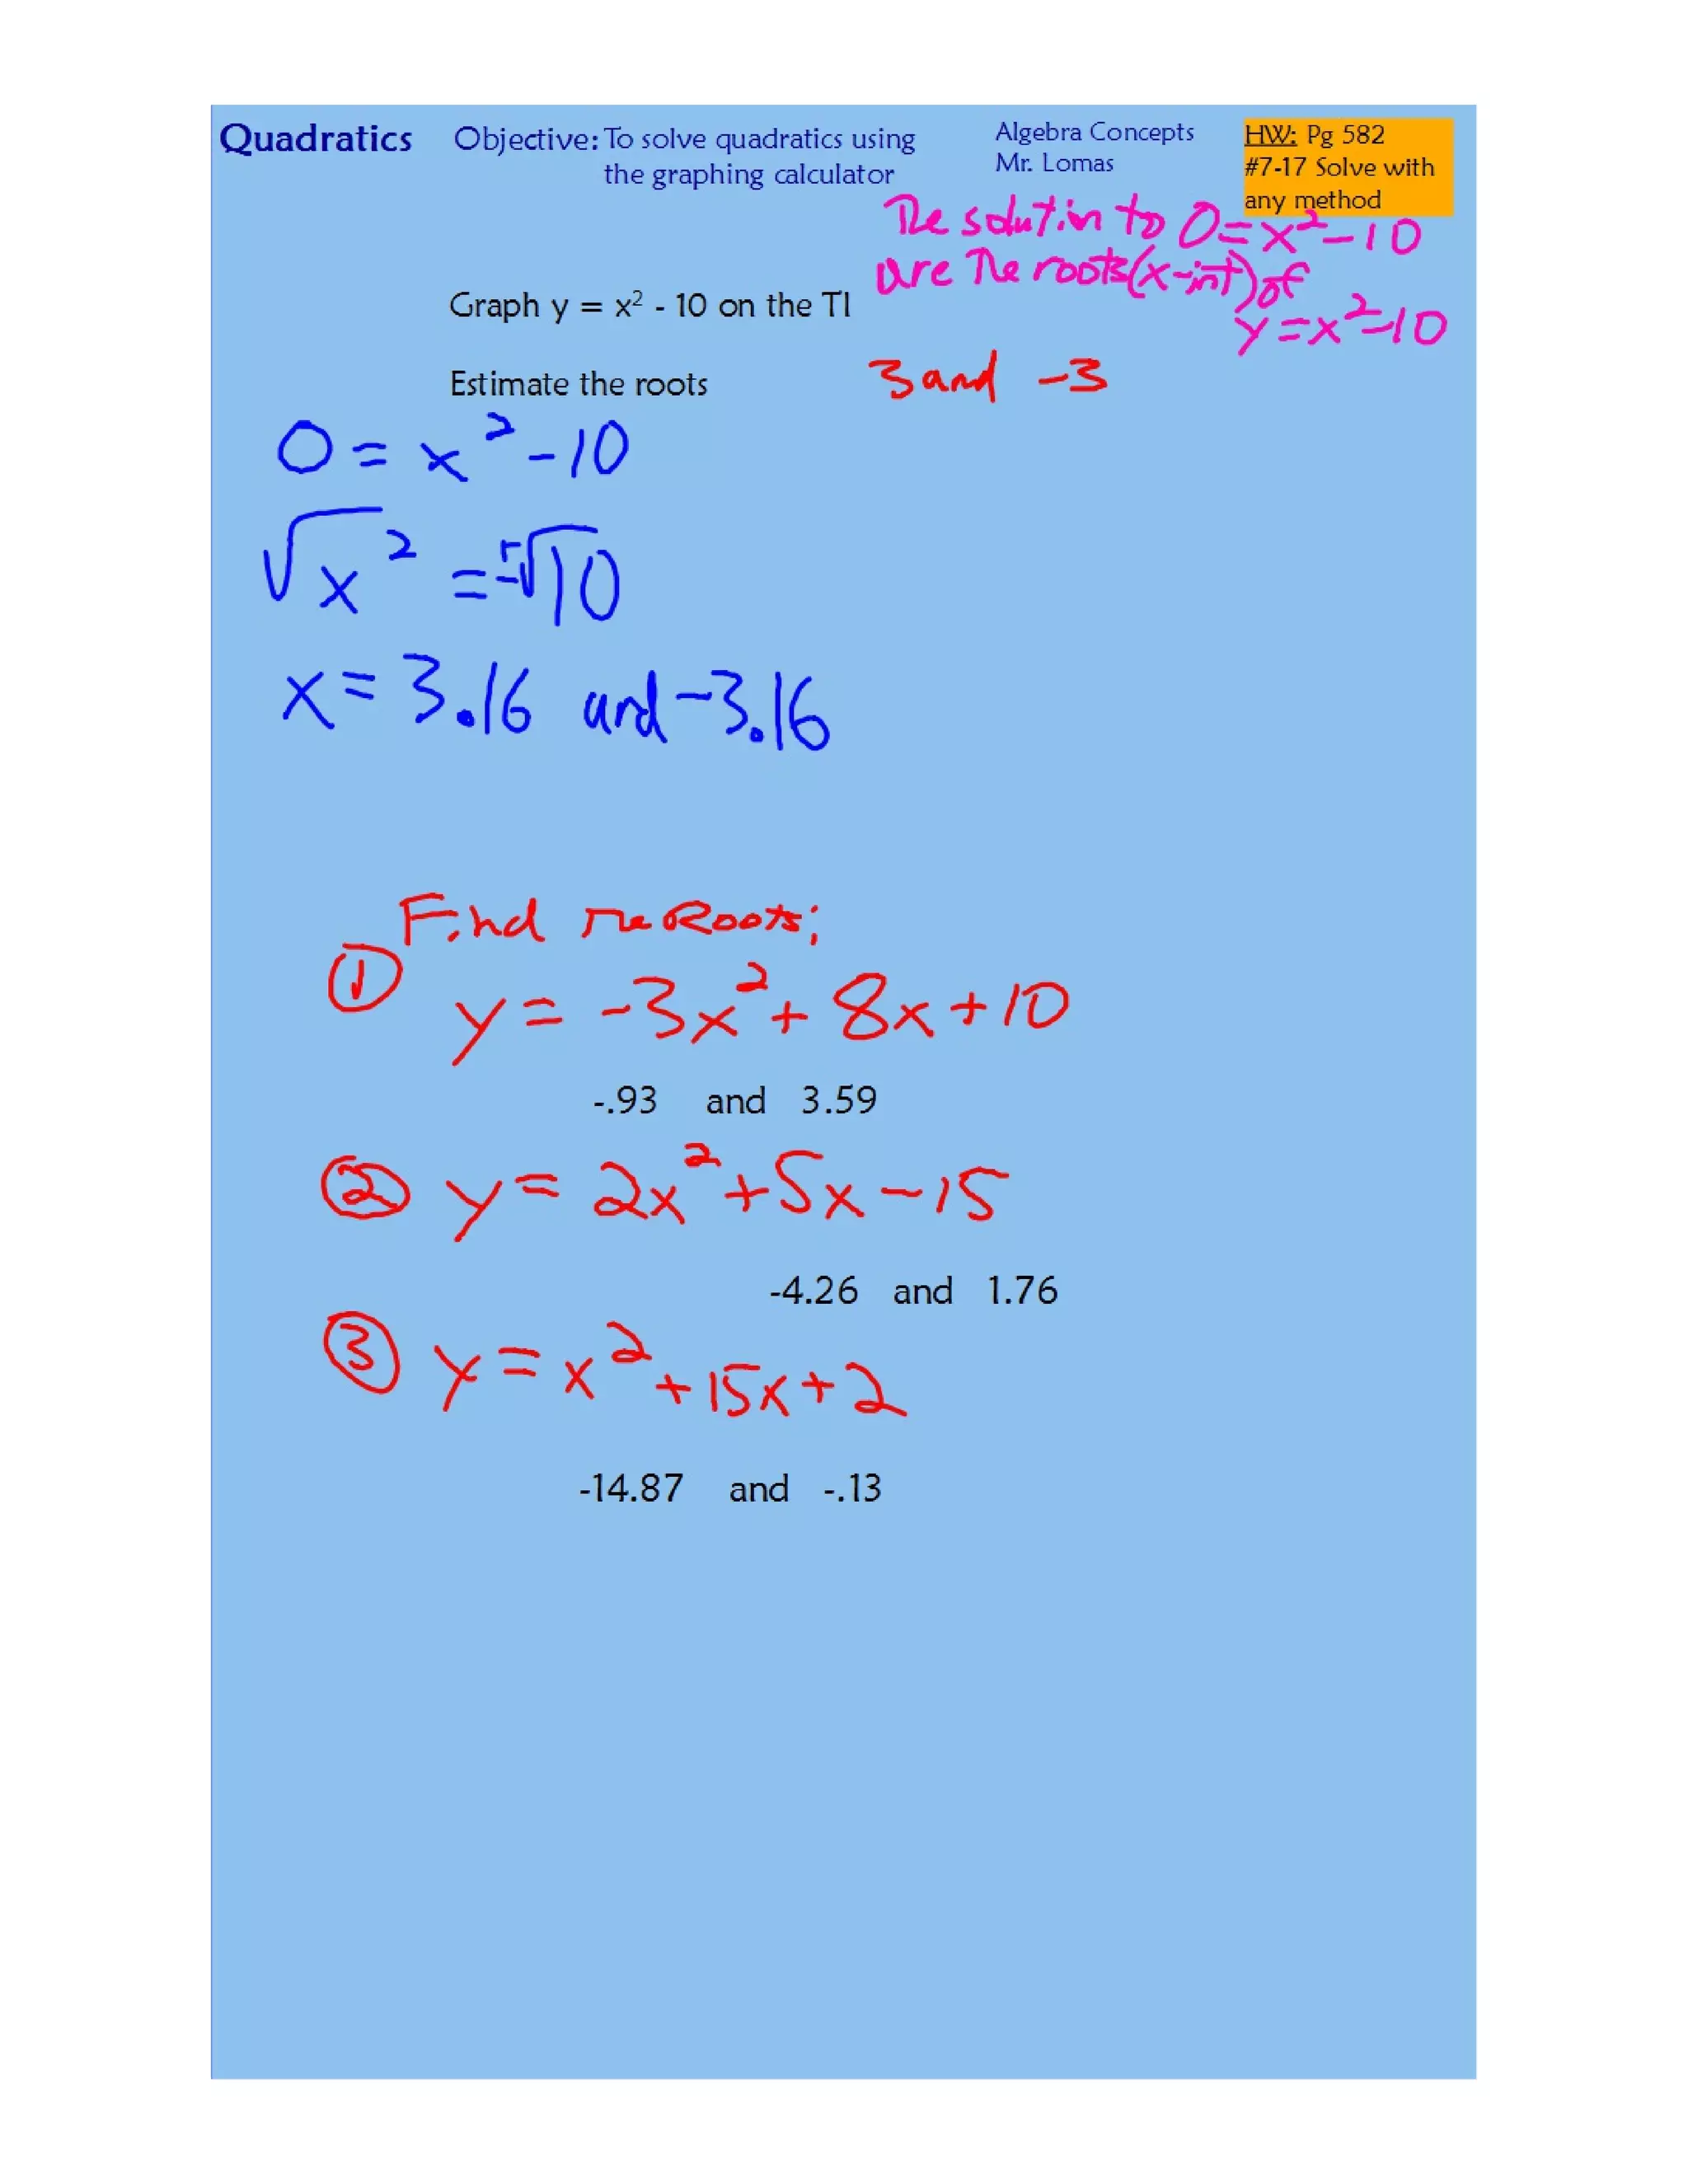 Quadratics Objective: To solve quadratics using
the graphing calculator
Algebra Concepts
Mr. Lomas
HW: Pg 582
#7-17 Solve with
any method
The solutin to 0=x²-10
are the roots (x-int) of
y=x²-10
Graph y = x² - 10 on the TI
Estimate the roots 3 and -3
0 = x² - 10
√x² = ±√10
x = 3.16 and -3.16
Find the Roots;
① y = -3x² + 8x + 10
-.93 and 3.59
② y = 2x² + 5x - 15
-4.26 and 1.76
③ y = x² + 15x + 2
-14.87 and -.13